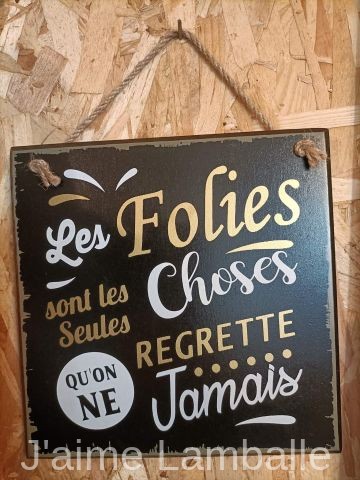 Les Folies
sont les Choses
Seules
QU'ON REGRETTE
NE Jamais
J'aime Lamballe